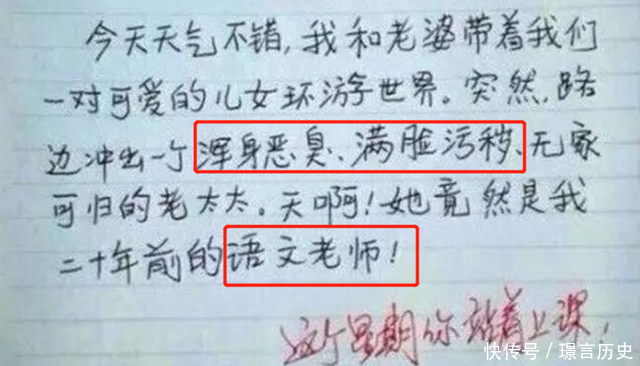 今天天气不错,我和老婆带着我们
一对可爱的儿女环游世界。突然,路
边冲出一个浑身恶臭、满脸污秽、无家
可归的老太太。天啊!她竟然是我
二十年前的语文老师!
这个星期你站着上课,
快传号/璟言历史